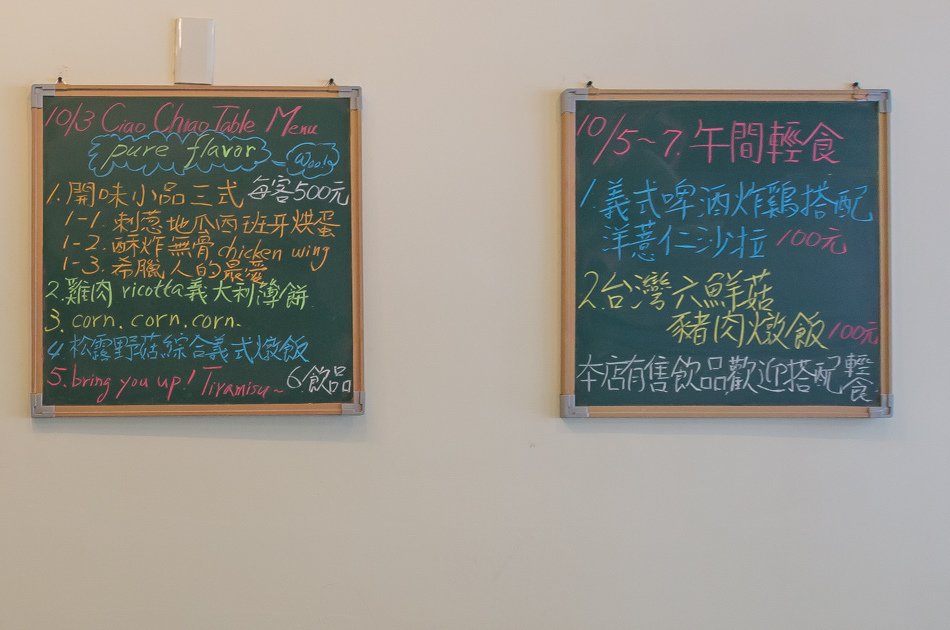 10/3 Ciao Chiao Table Menu
pure flavor
1. 開味小品三式 每客500元
1-1. 刺蔥地瓜西班牙烘蛋
1-2. 酥炸無骨chicken wing
1-3. 希臘人的最愛
2. 雞肉ricotta義大利薄餅
3. corn. corn. corn.
4. 松露野菇綜合義式燉飯
5. bring you up! Tiramisu~ 6. 飲品
10/5~7. 午間輕食
1. 義式啤酒炸鷄搭配
洋薏仁沙拉 100元
2. 台灣六鮮菇
豬肉燉飯 100元
本店有售飲品歡迎搭配輕食